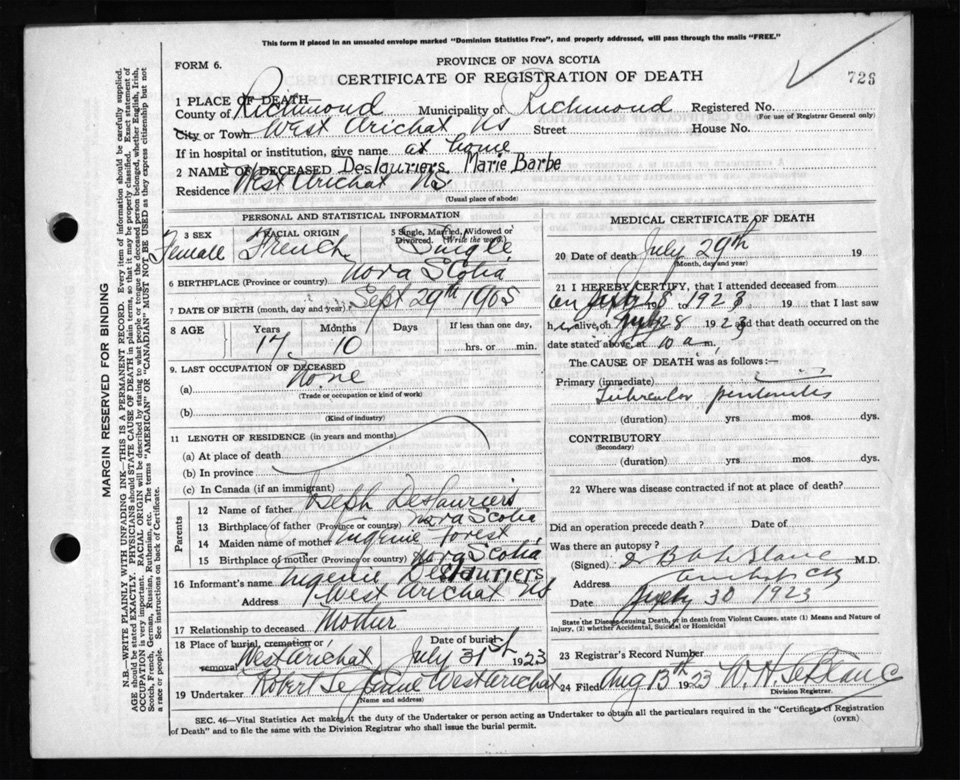 This form if placed in an unsealed envelope marked "Dominion Statistics Free", and properly addressed, will pass through the mails "FREE."
FORM 6.
PROVINCE OF NOVA SCOTIA
CERTIFICATE OF REGISTRATION OF DEATH
726
1 PLACE OF DEATH—
County of Richmond Municipality of Richmond Registered No.
(For use of Registrar General only)
City or Town West Arichat NS Street House No.
If in hospital or institution, give name at home
2 NAME OF DECEASED Deslauriers, Marie Barbe
Residence West Arichat NS
(Usual place of abode)
PERSONAL AND STATISTICAL INFORMATION
3 SEX Female
RACIAL ORIGIN French
5 Single, Married, Widowed or Divorced. (Write the word) Single
6 BIRTHPLACE (Province or country) Nova Scotia
7 DATE OF BIRTH (month, day and year) Sept 29th 1905
8 AGE Years Months Days If less than one day,
17 10 hrs. or min.
9. LAST OCCUPATION OF DECEASED
(a) None
(Trade or occupation or kind of work)
(b)
(Kind of industry)
11 LENGTH OF RESIDENCE (in years and months)
(a) At place of death
(b) In province
(c) In Canada (if an immigrant)
Parents
12 Name of father Joseph Deslauriers
13 Birthplace of father (Province or country) Nova Scotia
14 Maiden name of mother Eugenie Forest
15 Birthplace of mother (Province or country) Nova Scotia
16 Informant's name Eugenie Deslauriers
Address West Arichat NS
17 Relationship to deceased Mother
18 Place of burial, cremation or removal West Arichat
Date of burial July 31st 1923
19 Undertaker Robert West Arichat
(Name and address)
MEDICAL CERTIFICATE OF DEATH
20 Date of death July 29th 19
(Month, day and year)
21 I HEREBY CERTIFY, that I attended deceased
from 8 to 1923 19 that I last saw
her alive, on July 28 1923 and that death occurred on the
date stated above, at 10 a.m.
The CAUSE OF DEATH was as follows:—
Primary (immediate)
Tubercular peritonitis
(duration) yrs mos. dys.
CONTRIBUTORY
(Secondary)
(duration) yrs mos. dys.
22 Where was disease contracted if not at place of death?
Did an operation precede death? Date of
Was there an autopsy?
(Signed) Dr B A LeBlanc M.D.
Address Arichat
Date July 30 1923
State the Disease causing Death, or in death from Violent Causes, state (1) Means and Nature of
Injury, (2) whether Accidental, Suicidal or Homicidal
23 Registrar's Record Number
24 Filed Aug 13th 1923 W. H. LeBlanc
Division Registrar.
SEC. 46—Vital Statistics Act makes it the duty of the Undertaker or person acting as Undertaker to obtain all the particulars required in the "Certificate of Registration
of Death" and to file the same with the Division Registrar who shall issue the burial permit.
(OVER)
MARGIN RESERVED FOR BINDING
N.B.—WRITE PLAINLY WITH UNFADING INK—THIS IS A PERMANENT RECORD. Every item of information should be carefully supplied.
AGE should be stated EXACTLY. PHYSICIANS should STATE CAUSE OF DEATH in plain terms, so that it may be properly classified. Exact statement of
OCCUPATION is very important. RACIAL ORIGIN will be described by stating to what people or tongue the deceased person belonged, whether English, Irish,
Scotch, French, German, Russian, Ruthenian, etc. The terms "AMERICAN" OR "CANADIAN" MUST NOT BE USED as they express citizenship but not
a race or people. See instructions on back of Certificate.